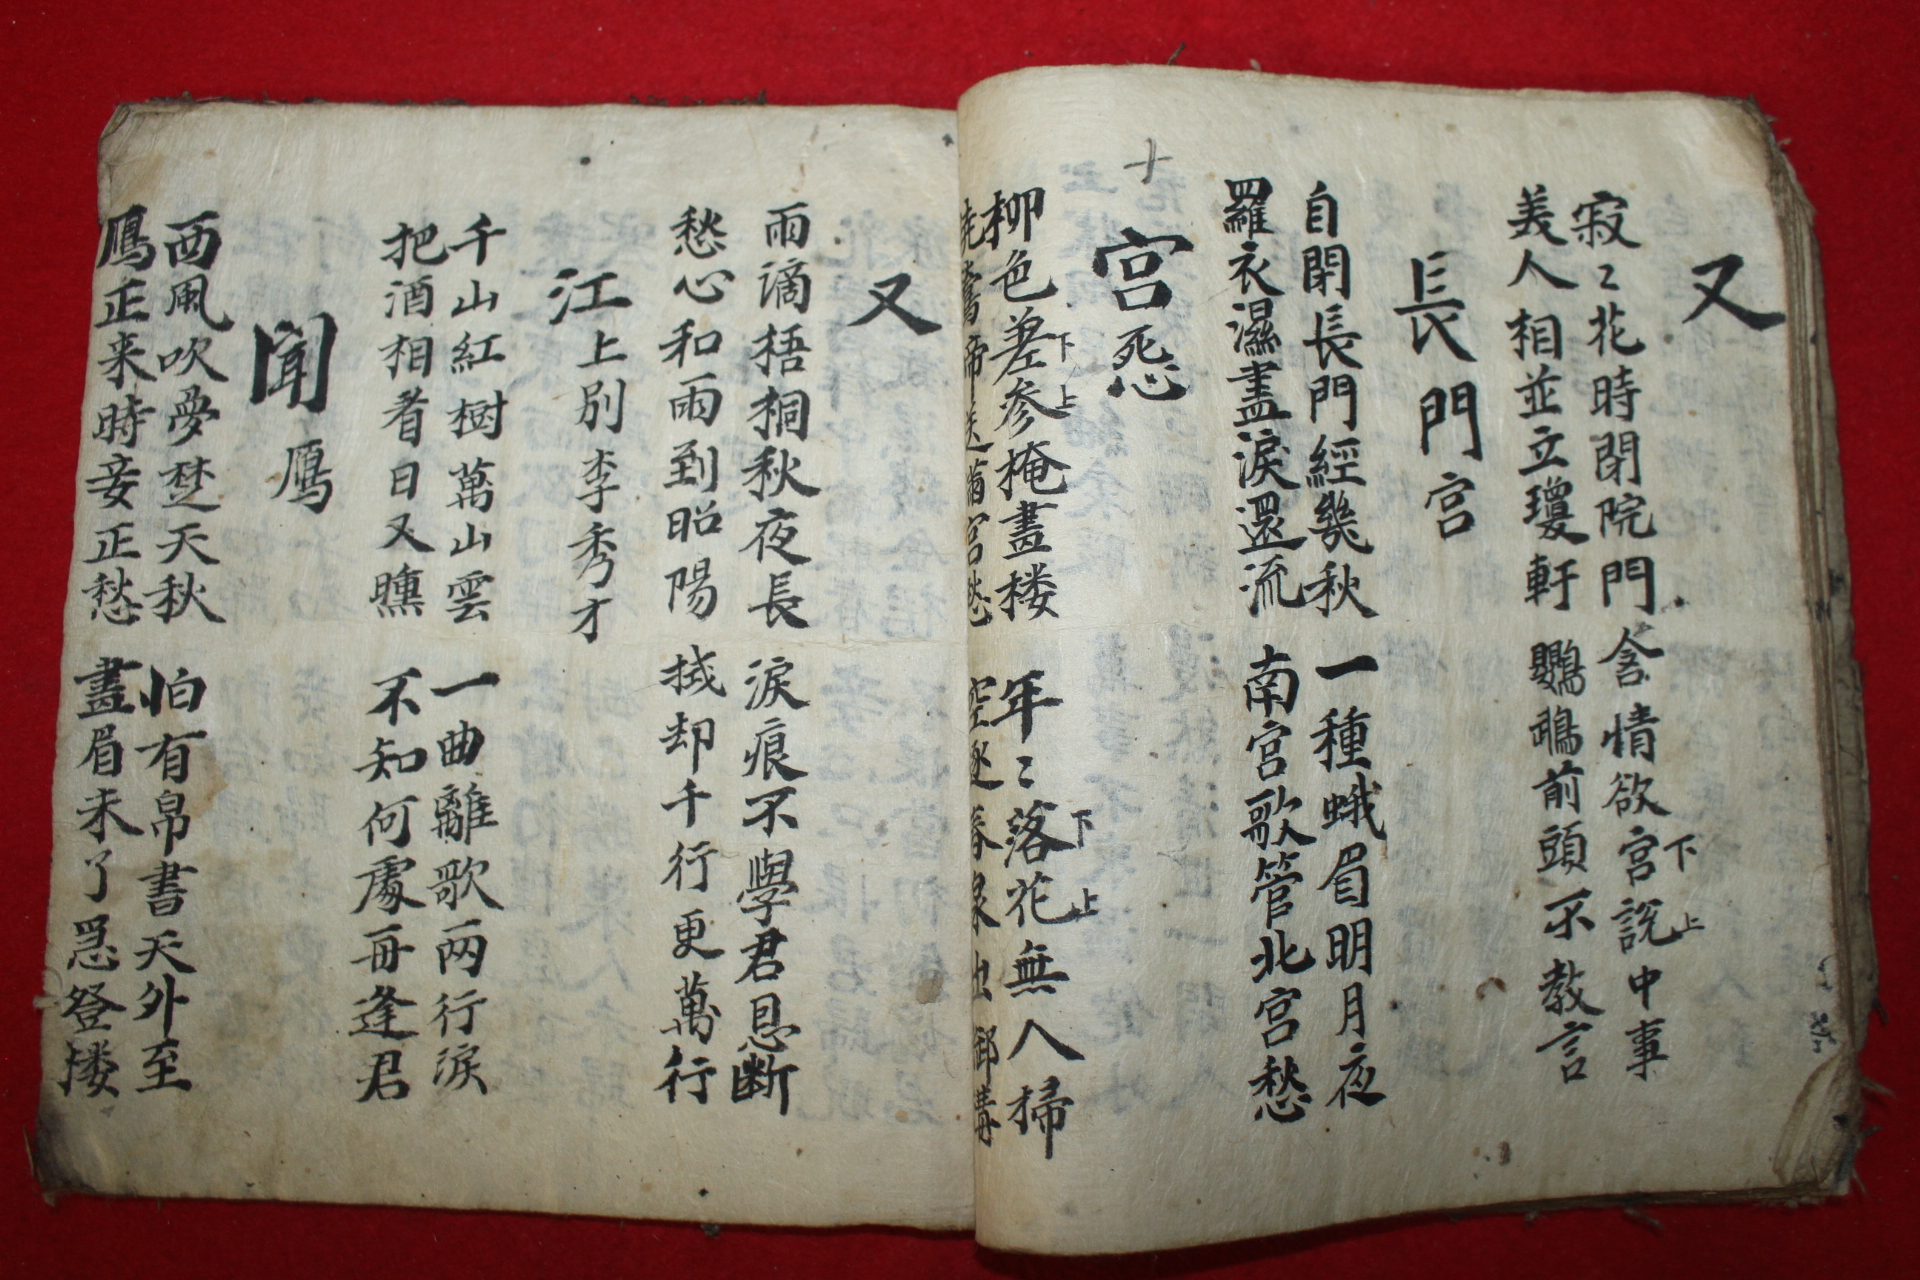 又
寂〻花時閉院門 含情欲宮說中事
下
上
美人相並立瓊軒 鸚鵡前頭不敎言
長門宮
自閉長門經幾秋 一種蛾眉明月夜
羅衣濕盡淚還流 南宮歌管北宮愁
十
宮怨
柳色差參掩畫楼 年〻落花無人掃
下
上
下
上
曉鶯啼送滿宮愁 空逐春泉出御溝
又
雨滴梧桐秋夜長 淚痕不學君恩断
愁心和雨到昭陽 拭却千行更萬行
江上別李秀才
千山紅樹萬山雲 一曲離歌兩行淚
把酒相看日又曛 不知何處再逢君
聞鴈
西風吹夢楚天秋 怕有帛書天外至
鴈正来時妾正愁 畫眉未了急登楼